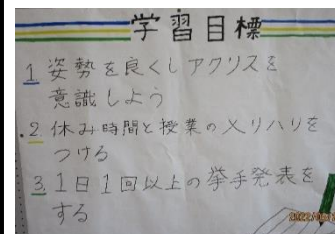 学習目標
1 姿勢を良くしアクリスを
意識しよう
2. 休み時間と授業のメリハリを
つける
3. 1日1回以上の挙手発表を
する